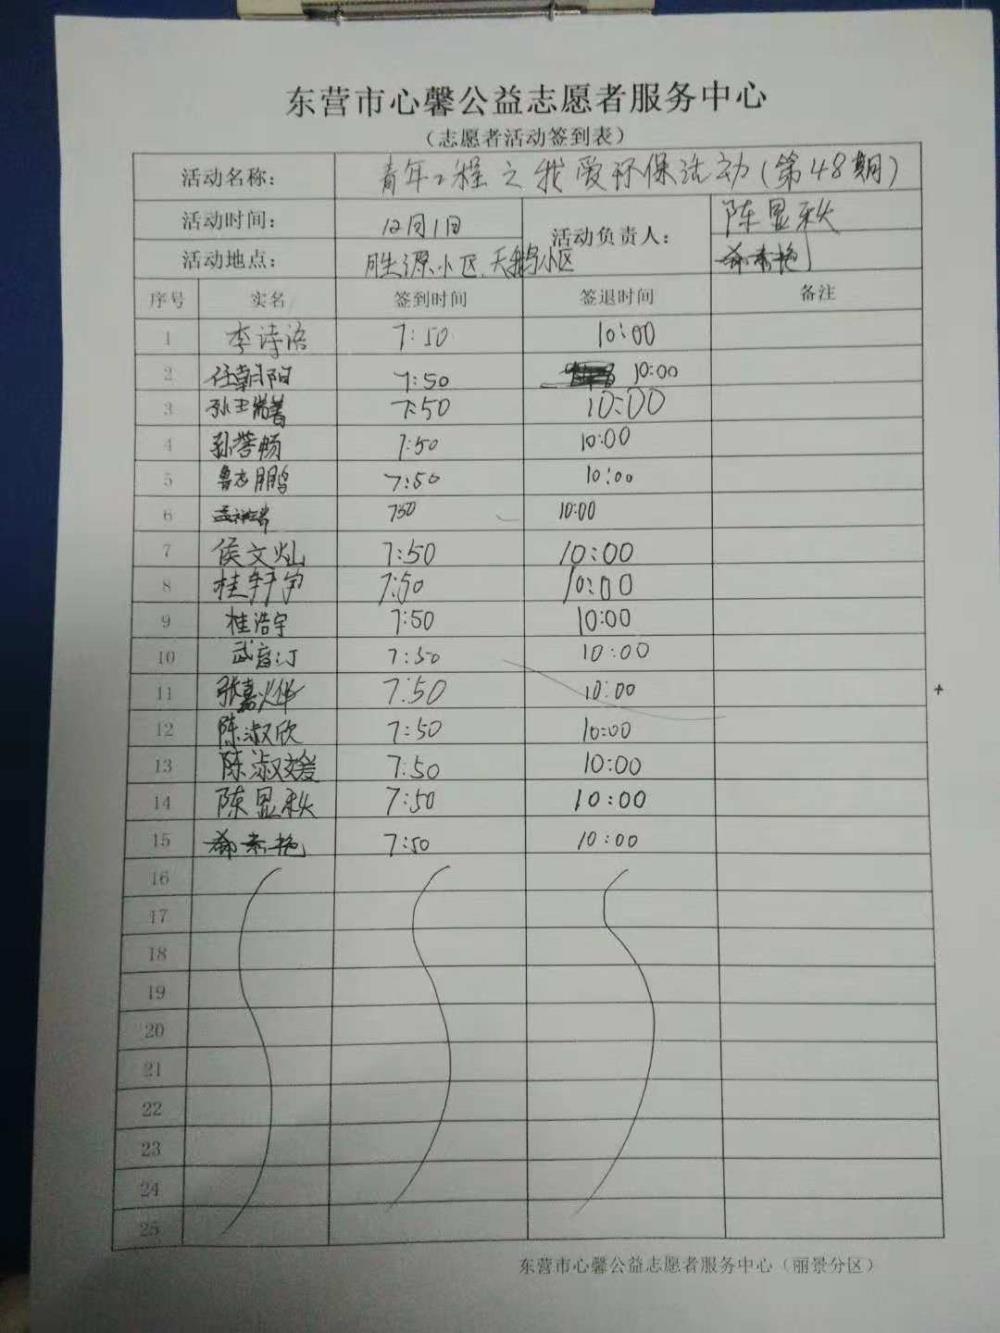 东营市心馨公益志愿者服务中心
（志愿者活动签到表）
活动名称： 青年工程之我爱环保活动（第48期）
活动时间： 12月1日 活动负责人： 陈显秋
活动地点： 胜源小区、天鹅小区 郗素艳
序号 实名 签到时间 签退时间 备注
1 李诗语 7:50 10:00
2 任朝阳 7:50 10:00
3 孙王 7:50 10:00
4 孙誉畅 7:50 10:00
5 鲁志鹏 7:50 10:00
6 750 10:00
7 侯文灿 7:50 10:00
8 桂轩宇 7:50 10:00
9 桂浩宇 7:50 10:00
10 7:50 10:00
11 张嘉烨 7:50 10:00
12 陈淑欣 7:50 10:00
13 陈淑媛 7:50 10:00
14 陈显秋 7:50 10:00
15 郗素艳 7:50 10:00
16
17
18
19
20
21
22
23
24
25
东营市心馨公益志愿者服务中心（丽景分区）